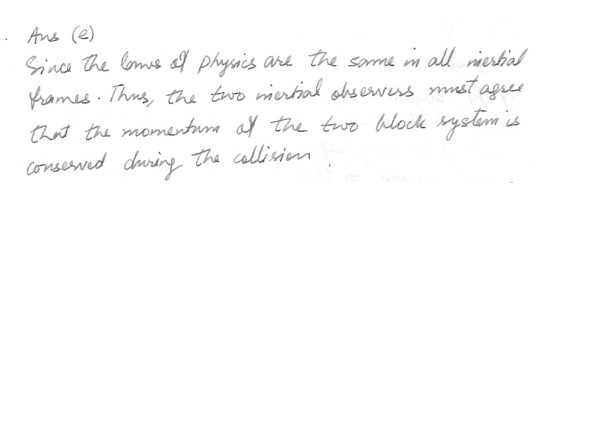 Ans (e)
Since the laws of physics are the same in all inertial
frames. Thus, the two inertial observers must agree
that the momentum of the two block system is
conserved during the collision.